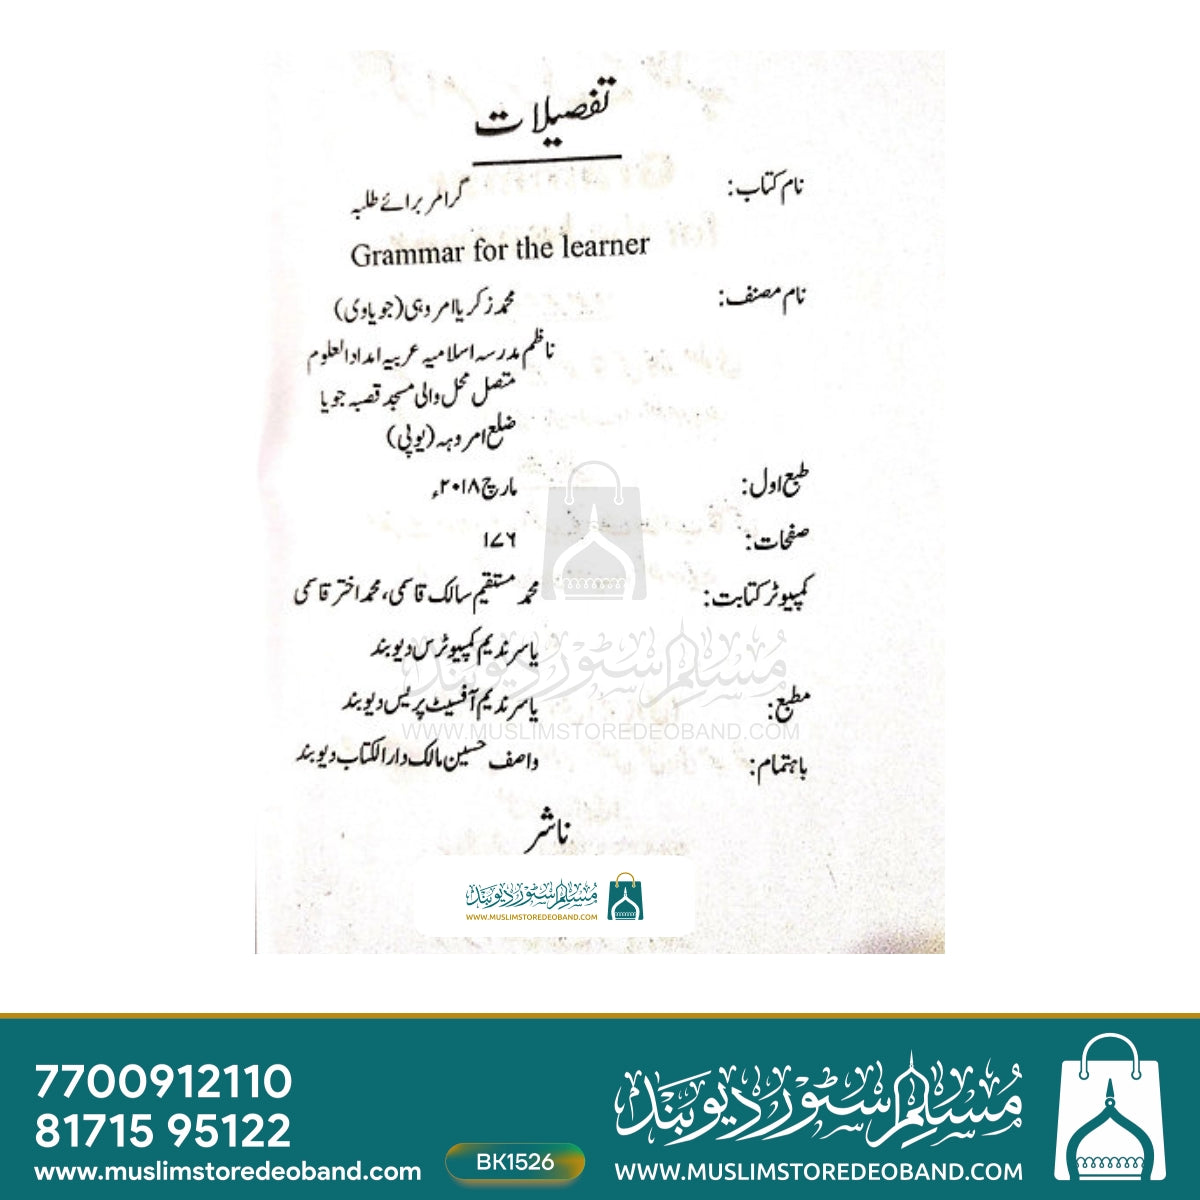 تفصیلات
نام کتاب: گرامر برائے طلبہ
Grammar for the learner
نام مصنف: محمد زکریا امروہی (جویاوی)
ناظم مدرسہ اسلامیہ عربیہ امداد العلوم
متصل محل والی مسجد قصبہ جویا
ضلع امروہہ (یوپی)
طبع اول: مارچ ۲۰۱۸ء
صفحات: ۱۷۶
کمپیوٹر کتابت: محمد مستقیم سالک قاسمی، محمد اختر قاسمی
یاسر ندیم کمپیوٹرس دیوبند
مطبع: یاسر ندیم آفسیٹ پریس دیوبند
باہتمام: واصف حسین مالک دار الکتاب دیوبند
ناشر
مسلم سٹور دیوبند
WWW.MUSLIMSTOREDEOBAND.COM
مسلم سٹور دیوبند
WWW.MUSLIMSTOREDEOBAND.COM
7700912110
81715 95122
www.muslimstoredeoband.com
BK1526
مسلم سٹور دیوبند
WWW.MUSLIMSTOREDEOBAND.COM